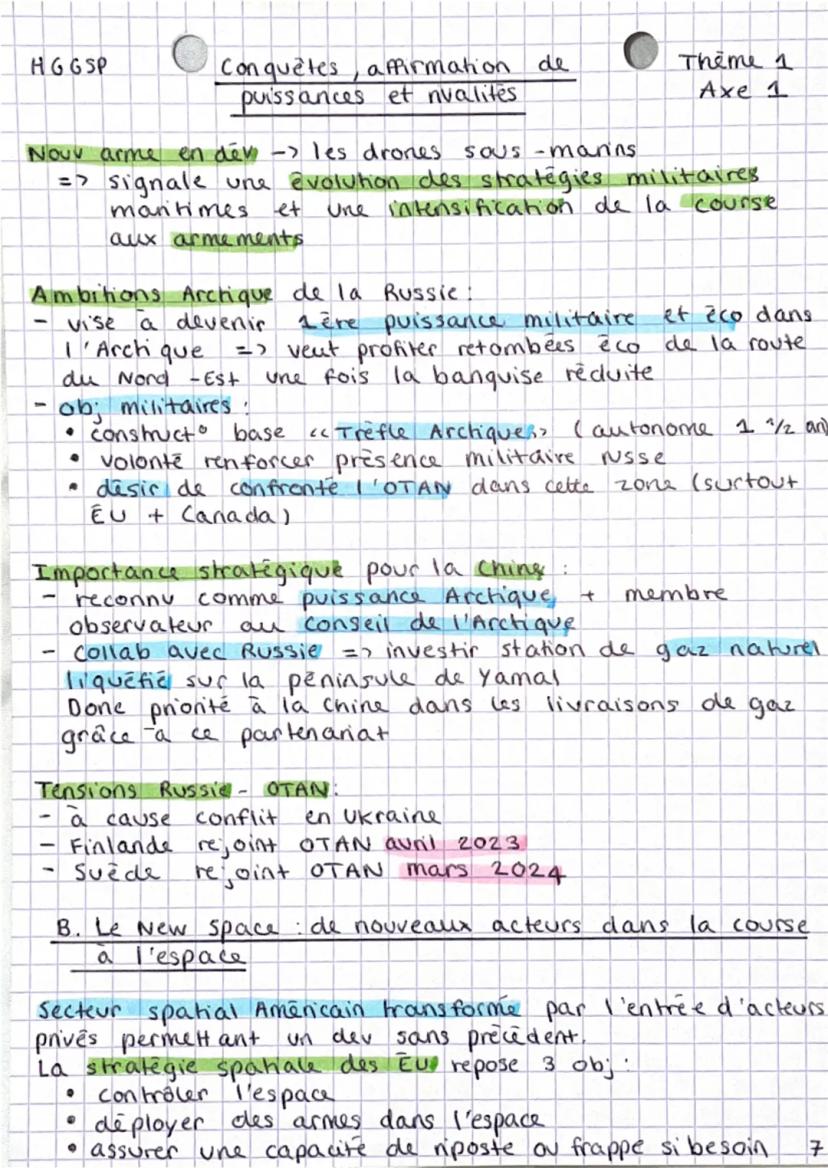 HGGSP
Conquêtes, affirmation de
puissances et rivalités
Thème 1
Axe 1
Nouv arme en dév -> les drones sous-marins
=> signale une évolution des stratégies militaires
maritimes et une intensification de la course
aux armements
Ambitions Arctique de la Russie :
- vise à devenir 1ère puissance militaire et éco dans
l'Arctique => veut profiter retombées éco de la route
du Nord-Est une fois la banquise réduite
- obj militaires :
• construct° base «Trèfle Arctique» (autonome 1 1/2 an)
• volonté renforcer présence militaire russe
• désir de confronté l'OTAN dans cette zone (surtout
ÉU + Canada)
Importance stratégique pour la Chine :
- reconnu comme puissance Arctique + membre
observateur au Conseil de l'Arctique
- collab avec Russie => investir station de gaz naturel
liquéfié sur la péninsule de Yamal
Donc priorité à la Chine dans les livraisons de gaz
grâce à ce partenariat
Tensions Russie - OTAN :
- à cause conflit en Ukraine
- Finlande rejoint OTAN avril 2023
- Suède rejoint OTAN mars 2024
B. Le New Space : de nouveaux acteurs dans la course
à l'espace
Secteur spatial Américain transformé par l'entrée d'acteurs
privés permettant un dev sans précédent.
La stratégie spatiale des ÉU repose 3 obj :
• contrôler l'espace
• déployer des armes dans l'espace
• assurer une capacité de riposte ou frappe si besoin
7